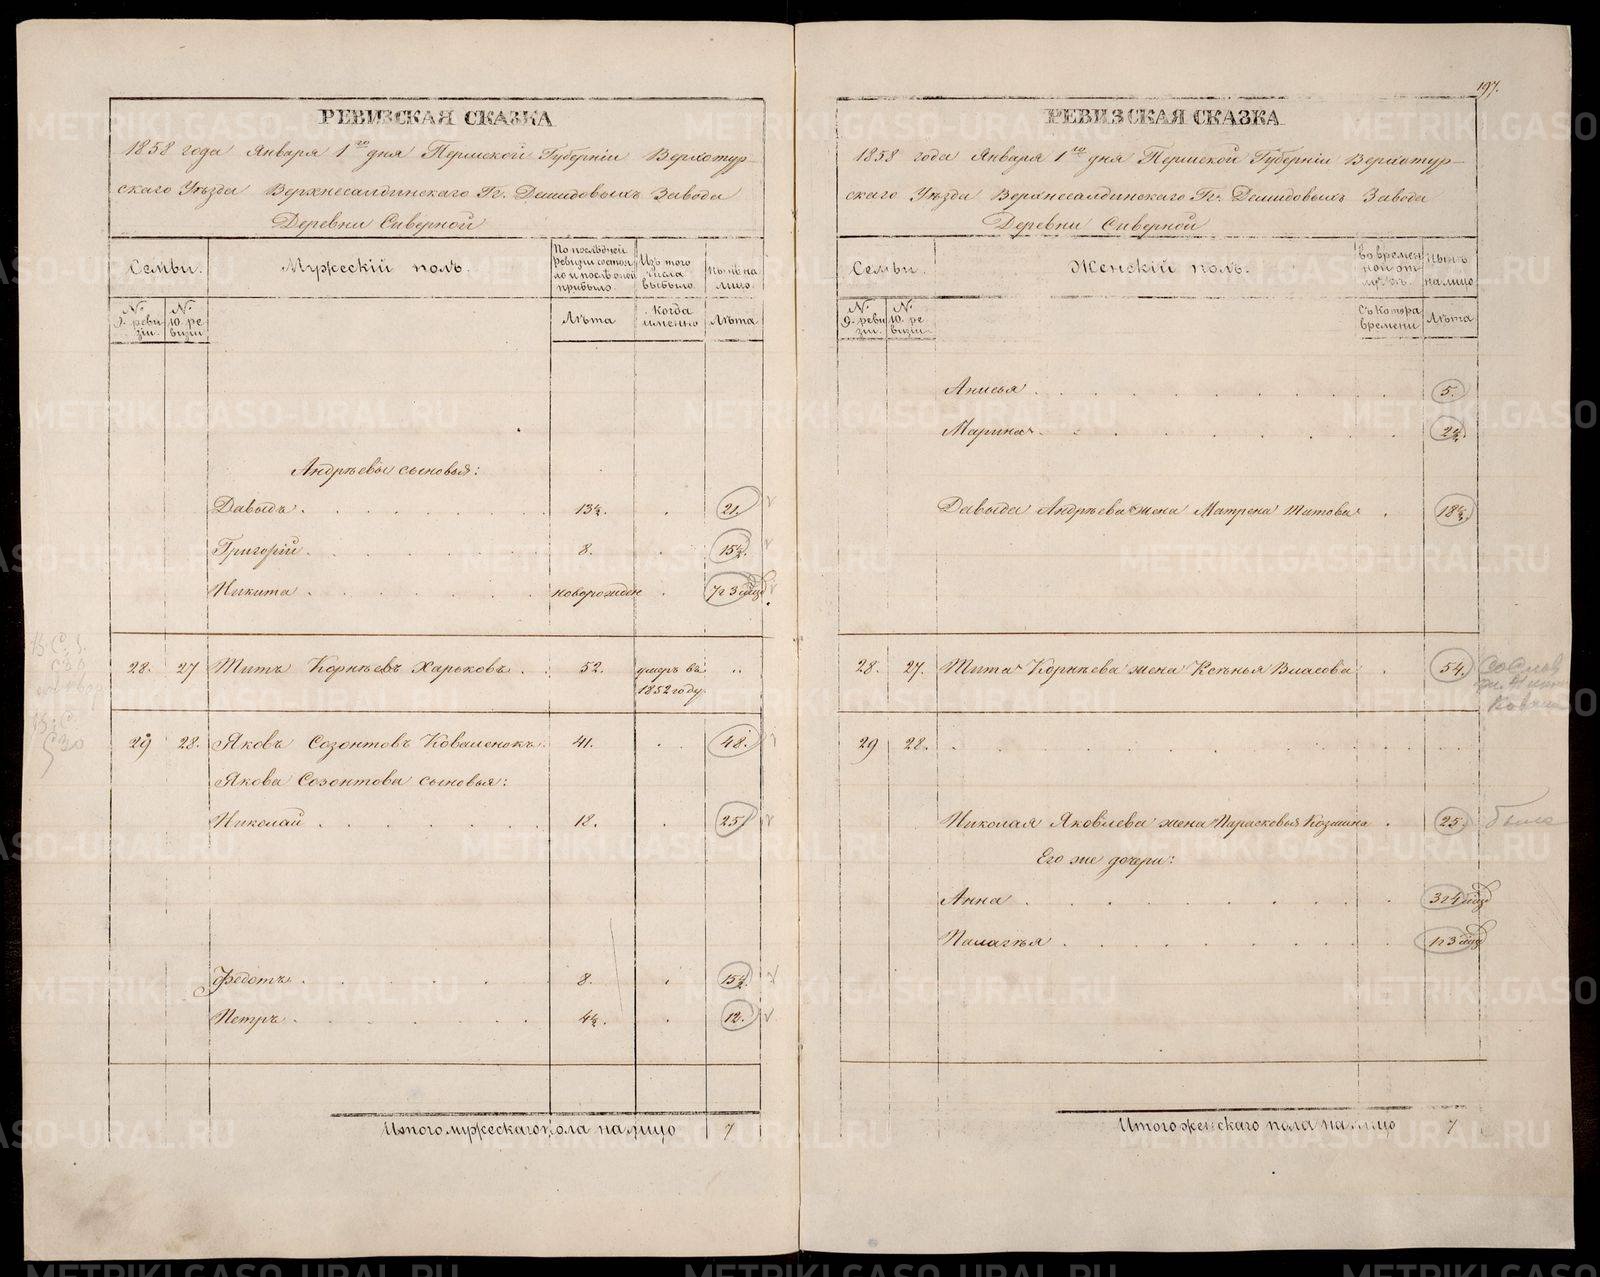 197.
РЕВИЗСКАЯ СКАЗКА
1858 года Января 1го дня Пермской Губерніи Верхотур-
скаго Уѣзда Верхнесалдинскаго Гг. Демидовыхъ Завода
Деревни Сиверной
Семьи.
Мужескій полъ.
По послѣдней ревизіи состояло и послѣ оной прибыло.
Изъ того числа выбыло.
Нынѣ на лицо.
№ 9. ревизіи.
№ 10. ревизіи
Лѣта
Когда именно
Лѣта
Андрѣевы сыновья:
Давыдъ. 13½. 21.
Григорій. 8. 15½.
Никита новорожден 7 г 3 мѣс
28. 27 Титъ Корнѣевъ Харьковъ. 52. умеръ въ
1852 году.
29 28. Яковъ Созонтовъ Коваленокъ. 41. 48.
Якова Созонтова сыновья:
Николай 18. 25.
Федотъ. 8. 15½.
Петръ. 4½. 12.
Итого мужескаго пола на лицо 7
РЕВИЗСКАЯ СКАЗКА
1858 года Января 1го дня Пермской Губерніи Верхотур-
скаго Уѣзда Верхнесалдинскаго Гг. Демидовыхъ Завода
Деревни Сиверной
Семьи.
Женскій полъ.
Во временной отлучкѣ.
Нынѣ на лицо
№ 9. ревизіи.
№ 10. ревизіи
Съ котора времени
Лѣта
Анисья 5.
Марина 2½.
Давыда Андрѣева жена Матрена Титова 18½.
28. 27. Тита Корнѣева жена Ксѣнья Власова 54.
29 28.
Николая Яковлева жена Парасковья Козмина 25.
Его же дочери:
Анна 3 г 4 мѣс
Палагѣя 1 г 3 мѣс
Итого женскаго пола на лицо 7
METRIKI.GASO-URAL.RU